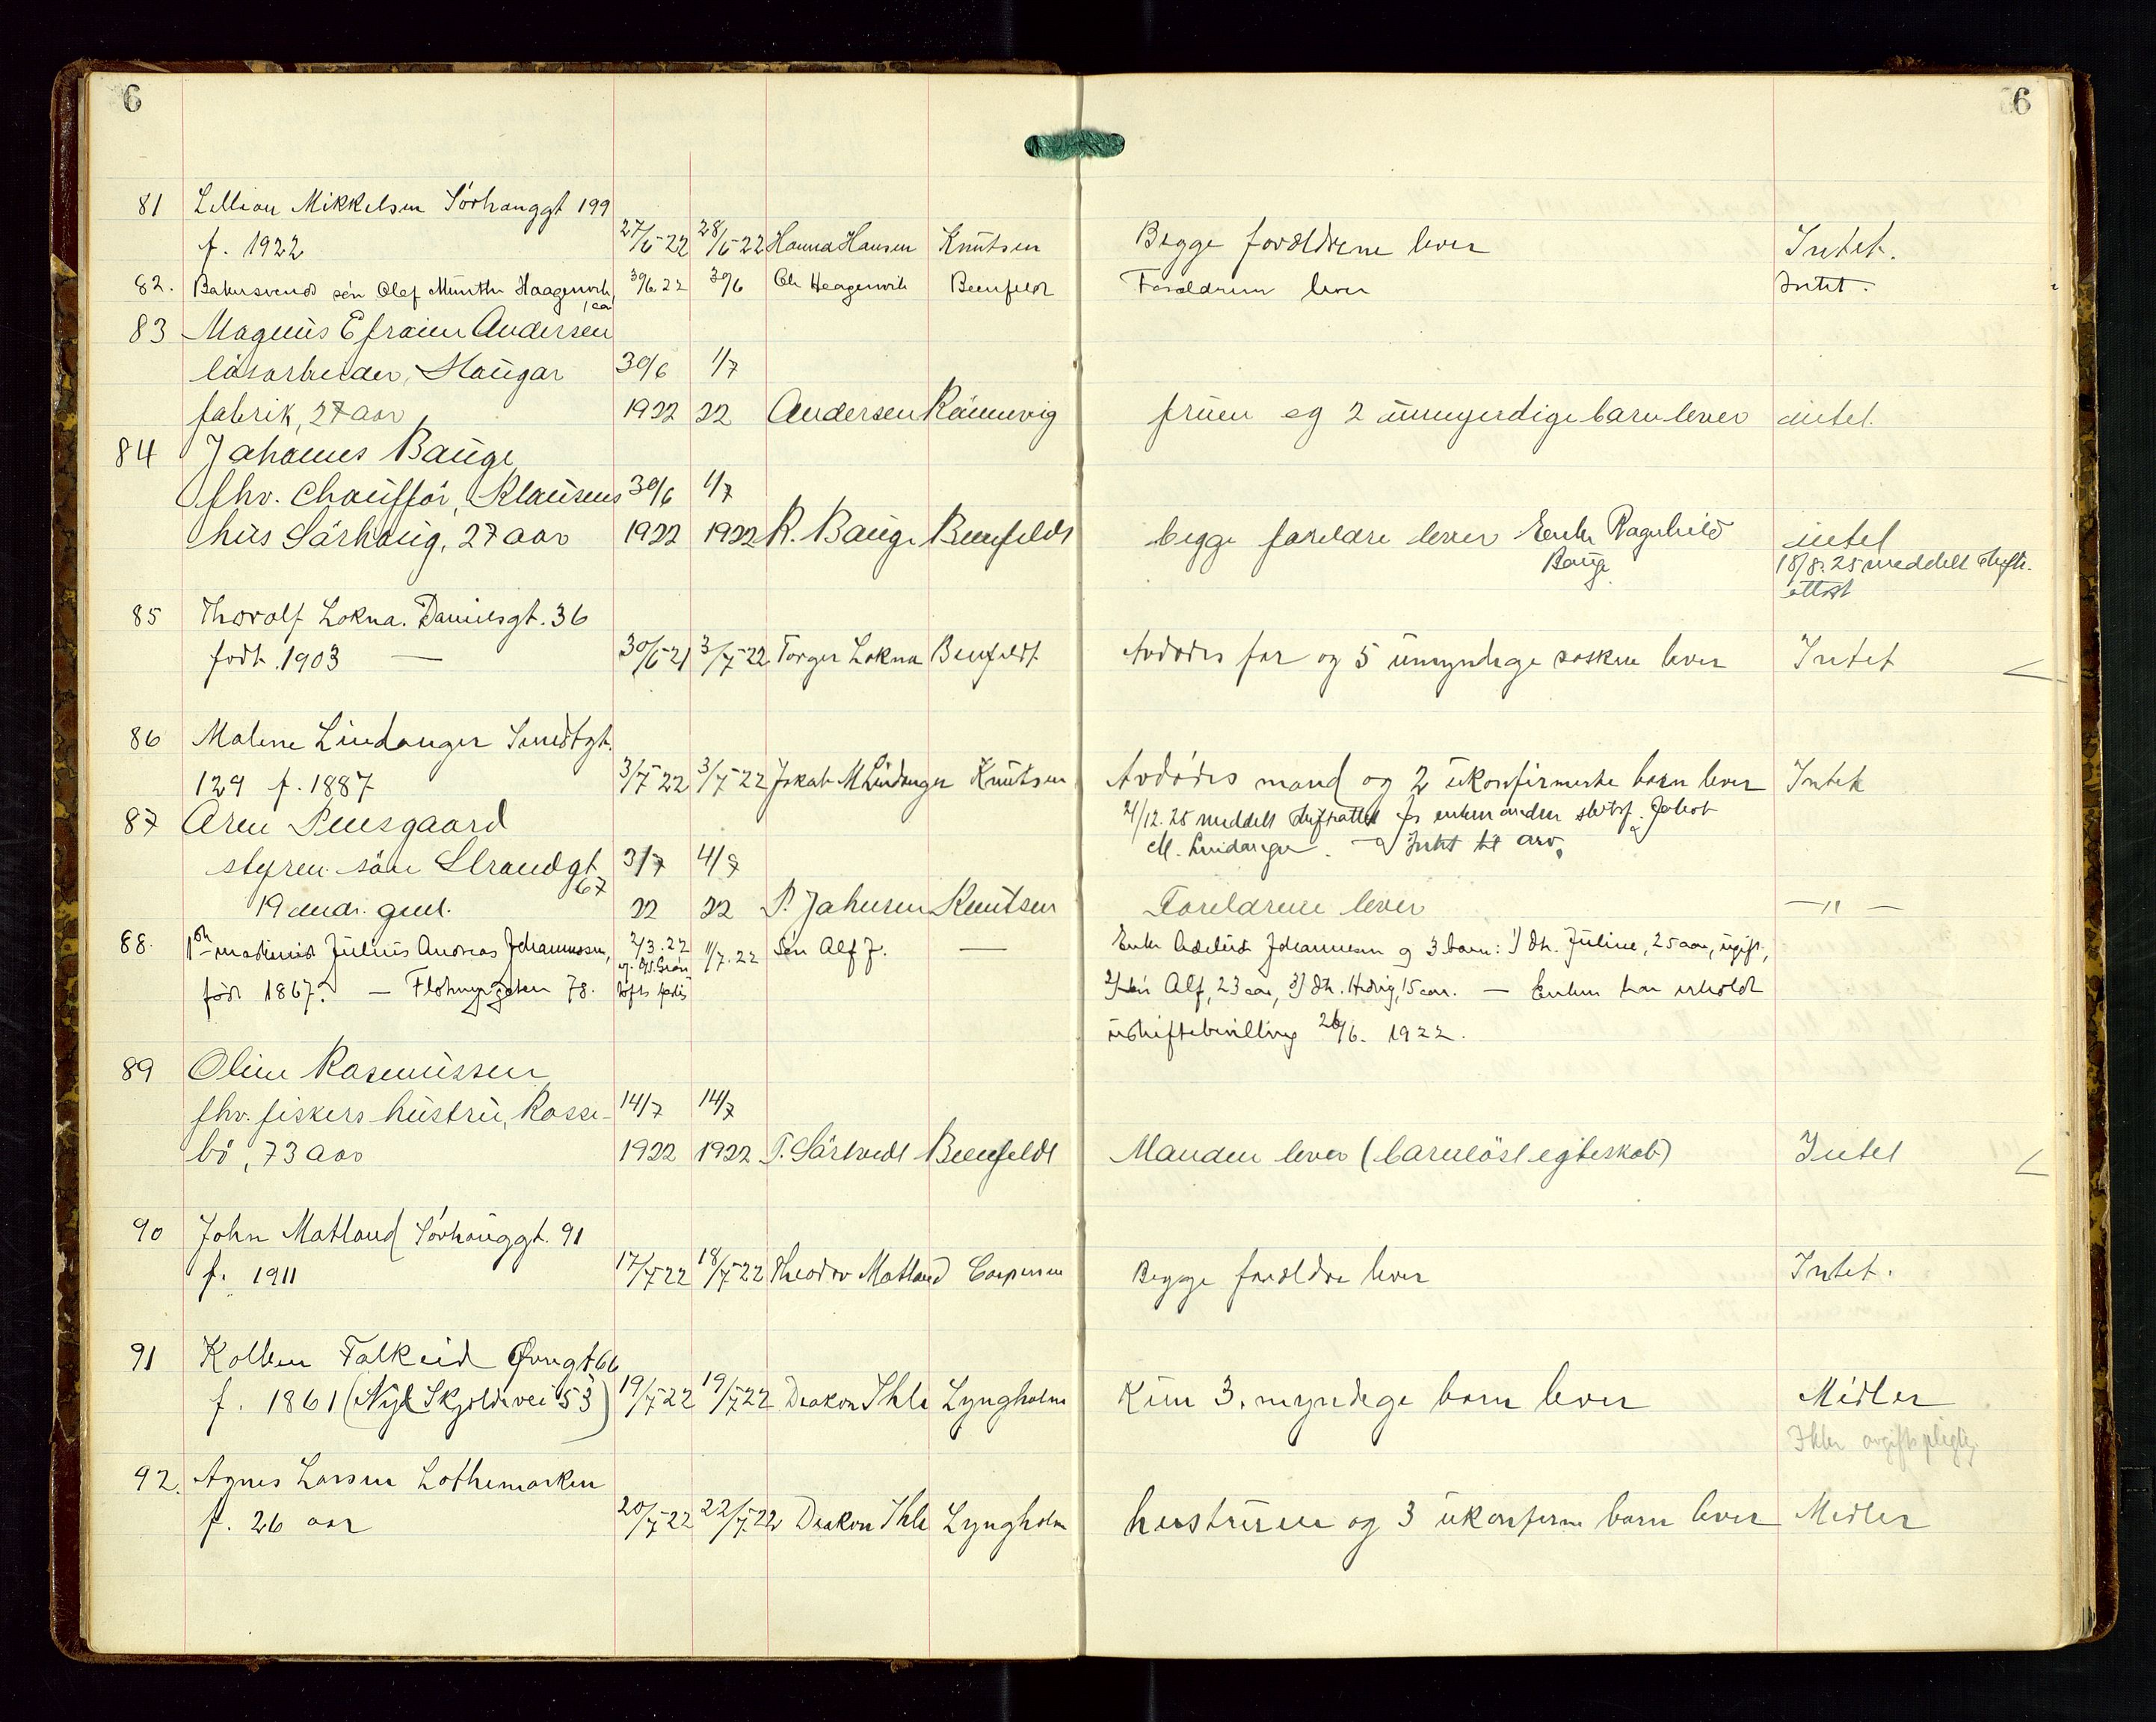 6
6
81 Lillian Mikkelsen Sörhauggt 199
f. 1922 27/6-22 28/6-22 Hanna Hansen Knutsen Begge forældrene lever Intet.
82. Bakersvend sön Olaf Münthe Haagenvik, 30/6 22 30/6 Ole Haagenvik Beenfeldt Forældrene lever Intet.
1 aar
83 Magnus Efraim Andersen
løsarbeider, Haugar 30/6 1/7
fabrik, 27 aar 1922 22 Andersen Rönnevig fruen og 2 umyndige barn lever intet.
84 Johannes Bauge
fhv. chaufför, Klausens 30/6 1/7
hus Sörhaug, 27 aar 1922 1922 R. Bauge Beenfeldt begge foreldre lever Enke Ragnhild intet
Bauge 18/8.25 meddelt skifte-
attest
85 Thoralf Lokna. Danielsgt. 36
født 1903 — 30/6-21 3/7-22 Torger Lokna Beenfeldt Avdødes far og 5 umyndige søsken lever Intet
86 Malene Lindanger Smedtgt.
129 f. 1887 3/7-22 3/7-22 Jakob M Lindanger Knutsen Avdødes mand og 2 ukonfirmerte barn lever Intet
21/12.25 meddelt skifteattest for enkemanden Jakob
M. Lindanger. — Intet til arv.
87 Arne Pensgaard
styrm. søn Strandgt 3/7 4/7
67
19 mdr. gml. 22 22 P. Johnsen Knutsen Foreldrene lever — " —
88. 1ste maskinist Julius Andreas Johannessen, 2/3.22 11/7.22 Sön Alf J. — Enke Adeleid Johannessen og 3 barn: 1) dtr. Juline, 25 aar, ugift,
født 1867. — Flotmyrgaten 78. 2) sön Alf, 23 aar, 3) dtr. Hedvig, 15 aar. — Enken har erholdt
uskiftebevilling 26/6. 1922.
89 Oline Rasmussen
fhv. fiskers hustru, Rosse- 14/7 14/7
bö, 73 aar 1922 1922 T. Sörhvedt Beenfeldt Manden lever (barnlöst egteskab) Intet
90 John Matland Sörhauggt. 91
f. 1911 17/7-22 18/7-22 Theodor Matland Caspersen Begge forældre lever Intet.
91 Kolben Falkeid Øvregt 66
f. 1861 (Nyt Skjoldavei 53) 19/7-22 19/7-22 Diakon Ihle Lyngholm Kun 3. myndige barn lever Midler
Ikke avgiftspligtig
92. Agnes Larsen Lothemarken
f. 26 aar 20/7-22 22/7-22 Diakon Ihle Lyngholm hustruen og 3 ukonfirm barn lever Midler